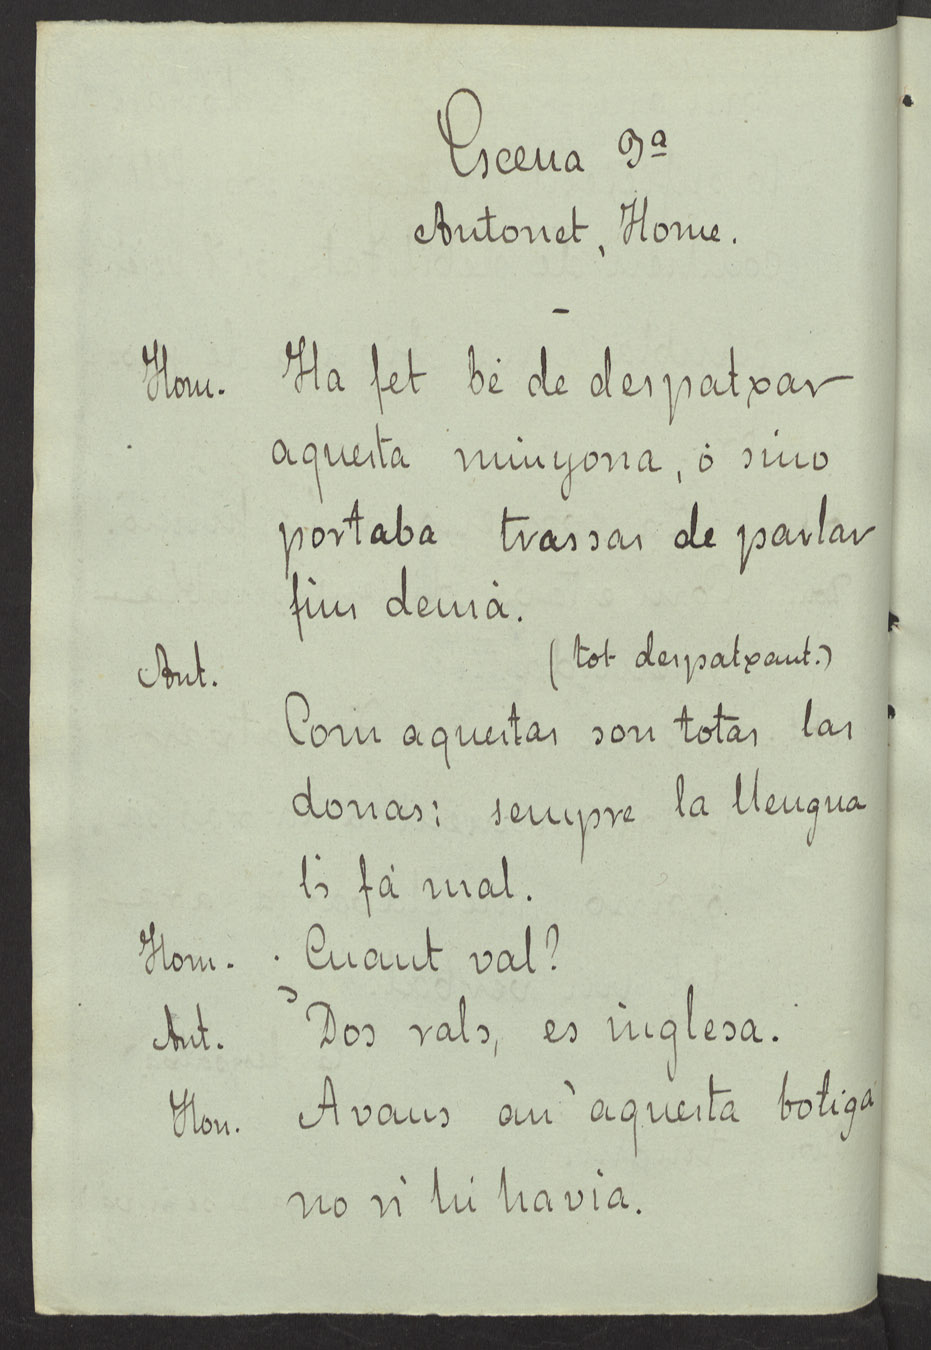 Escena 9ª
Antonet, Home.
Hom. Ha fet bé de despatxar
aquesta minyona, ó sino
portaba trassas de parlar
fins demá.
Ant. (tot despatxant.)
Com aquestas son totas las
donas; sempre la llengua
l's fá mal.
Hom. Cuant val?
Ant. Dos rals, es inglesa.
Hon. Avans an' aquesta botiga
no n' hi havia.